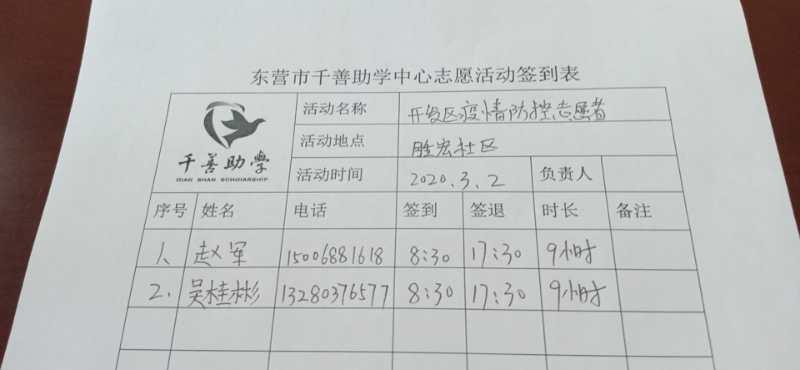 东营市千善助学中心志愿活动签到表
千善助学
QIAN SHAN SCHOLARSHIP
活动名称 开发区疫情防控志愿者
活动地点 胜宏社区
活动时间 2020.3.2 负责人
序号 姓名 电话 签到 签退 时长 备注
1、 赵军 15006881618 8:30 17:30 9小时
2、 吴桂彬 13280376577 8:30 17:30 9小时